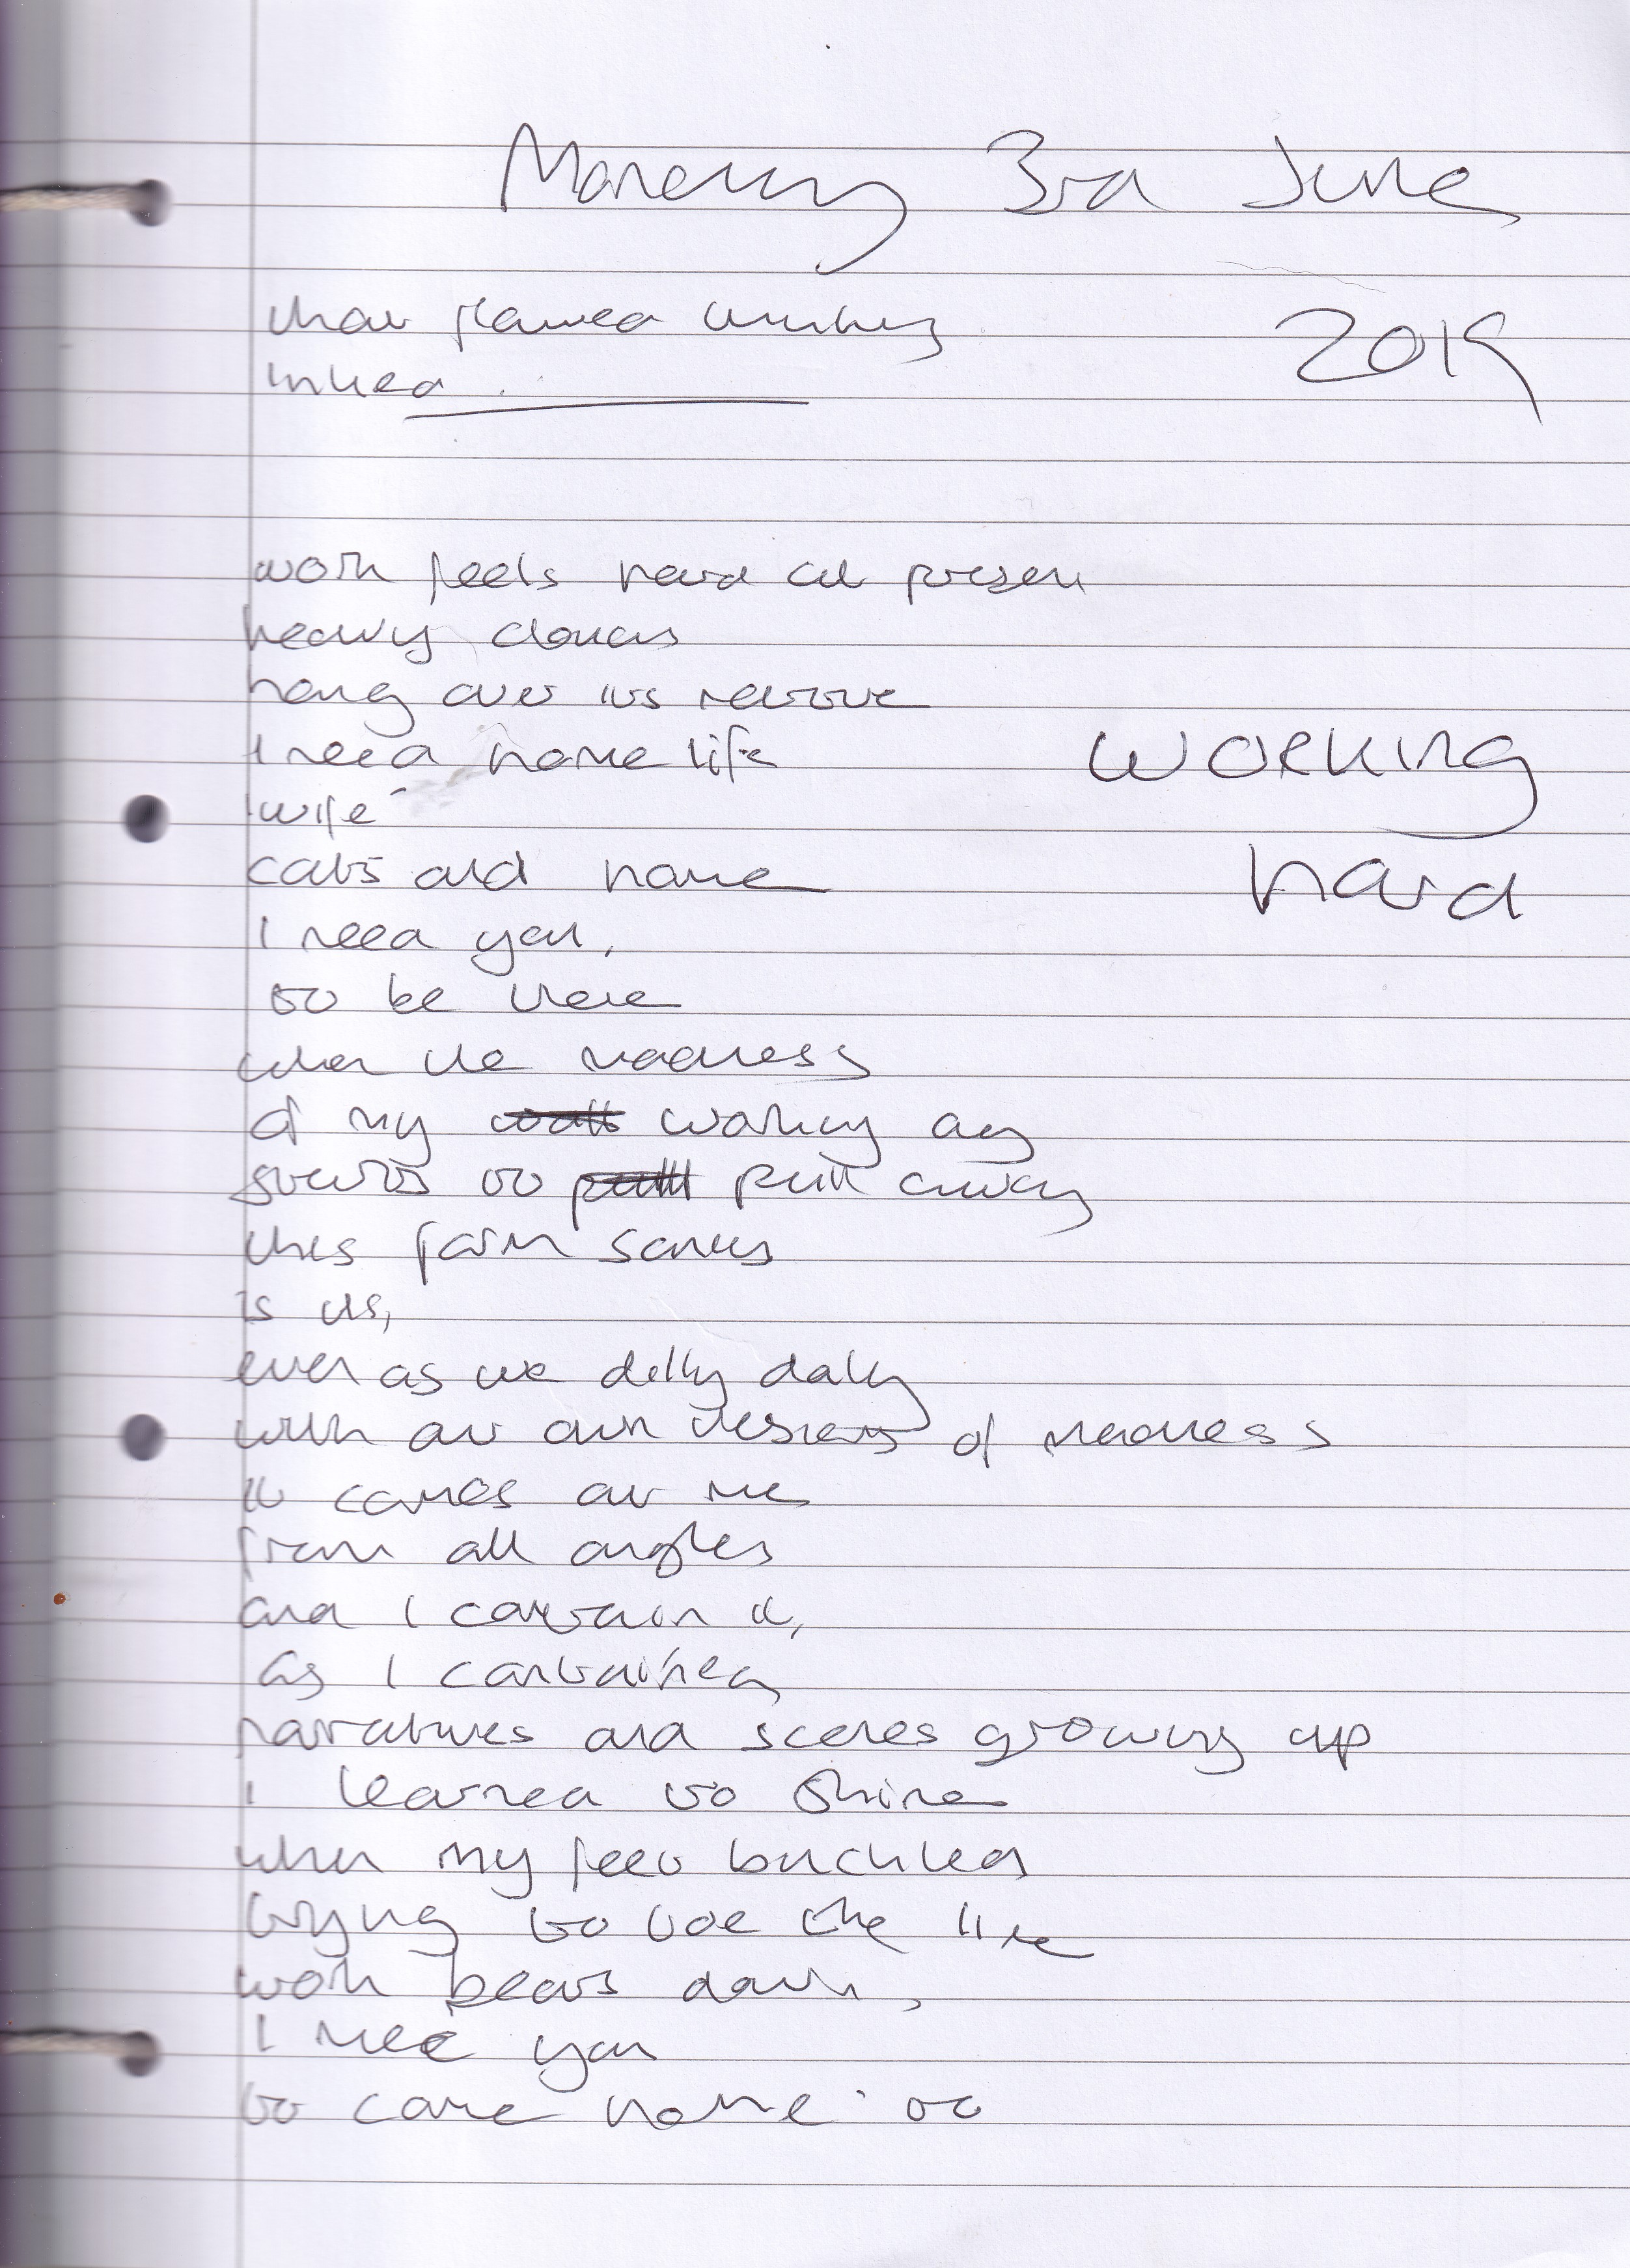 Monday 3rd June
2019
that flawed writing
inked
work feels hard at present
heavy clouds
hang over us
I need home life
wife
cats and home
Working
hard
I need you,
to be there
when the madness
of my working day
starts to pull away
this farm
is us,
even as we dilly dally
with our own of madness
it comes at me
from all angles
and I contain it,
as I contained
narratives and scenes growing up
I learned to shine
when my feet buckled
trying to toe the line
work bears down,
I need you
to come home to